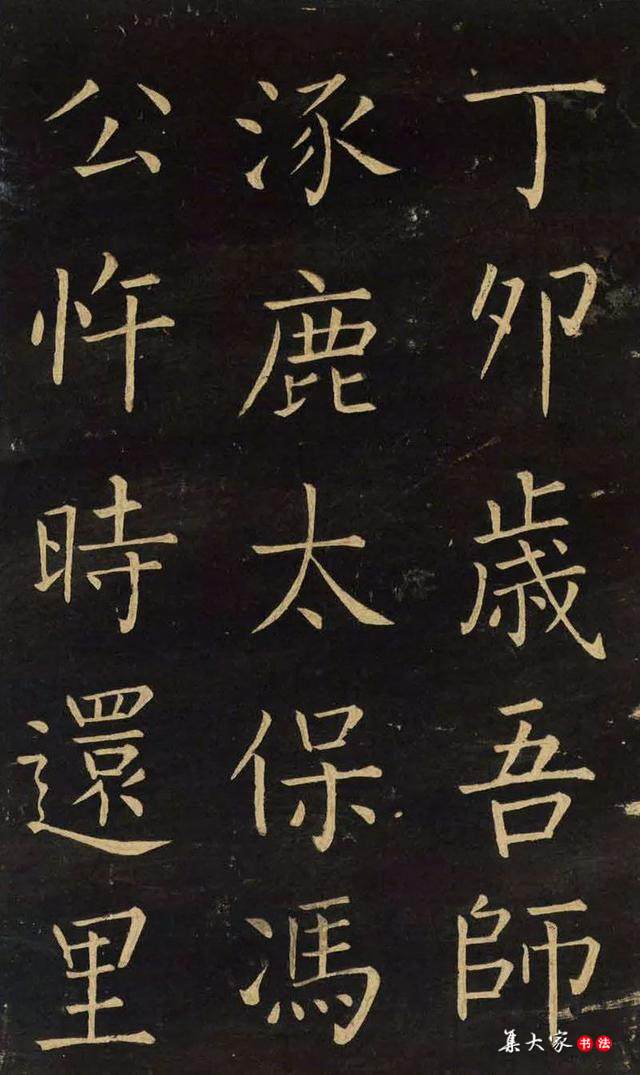 丁夘歳吾師
涿鹿太保馮
公忤時還里
集大家书法